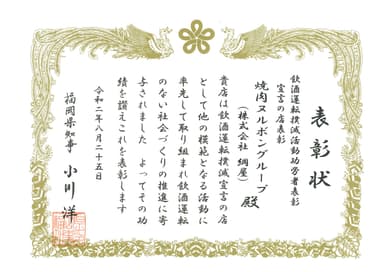 表彰状
飲酒運転撲滅活動功労者表彰
宣言の店表彰
焼肉ヌルボングループ 殿
（株式会社 綱屋）
貴店は飲酒運転撲滅宣言の店
として他の模範となる活動に
率先して取り組まれ飲酒運転
のない社会づくりの推進に寄
与されました よってその功
績を讃えこれを表彰します
令和二年八月二十五日
福岡県知事 小川 洋